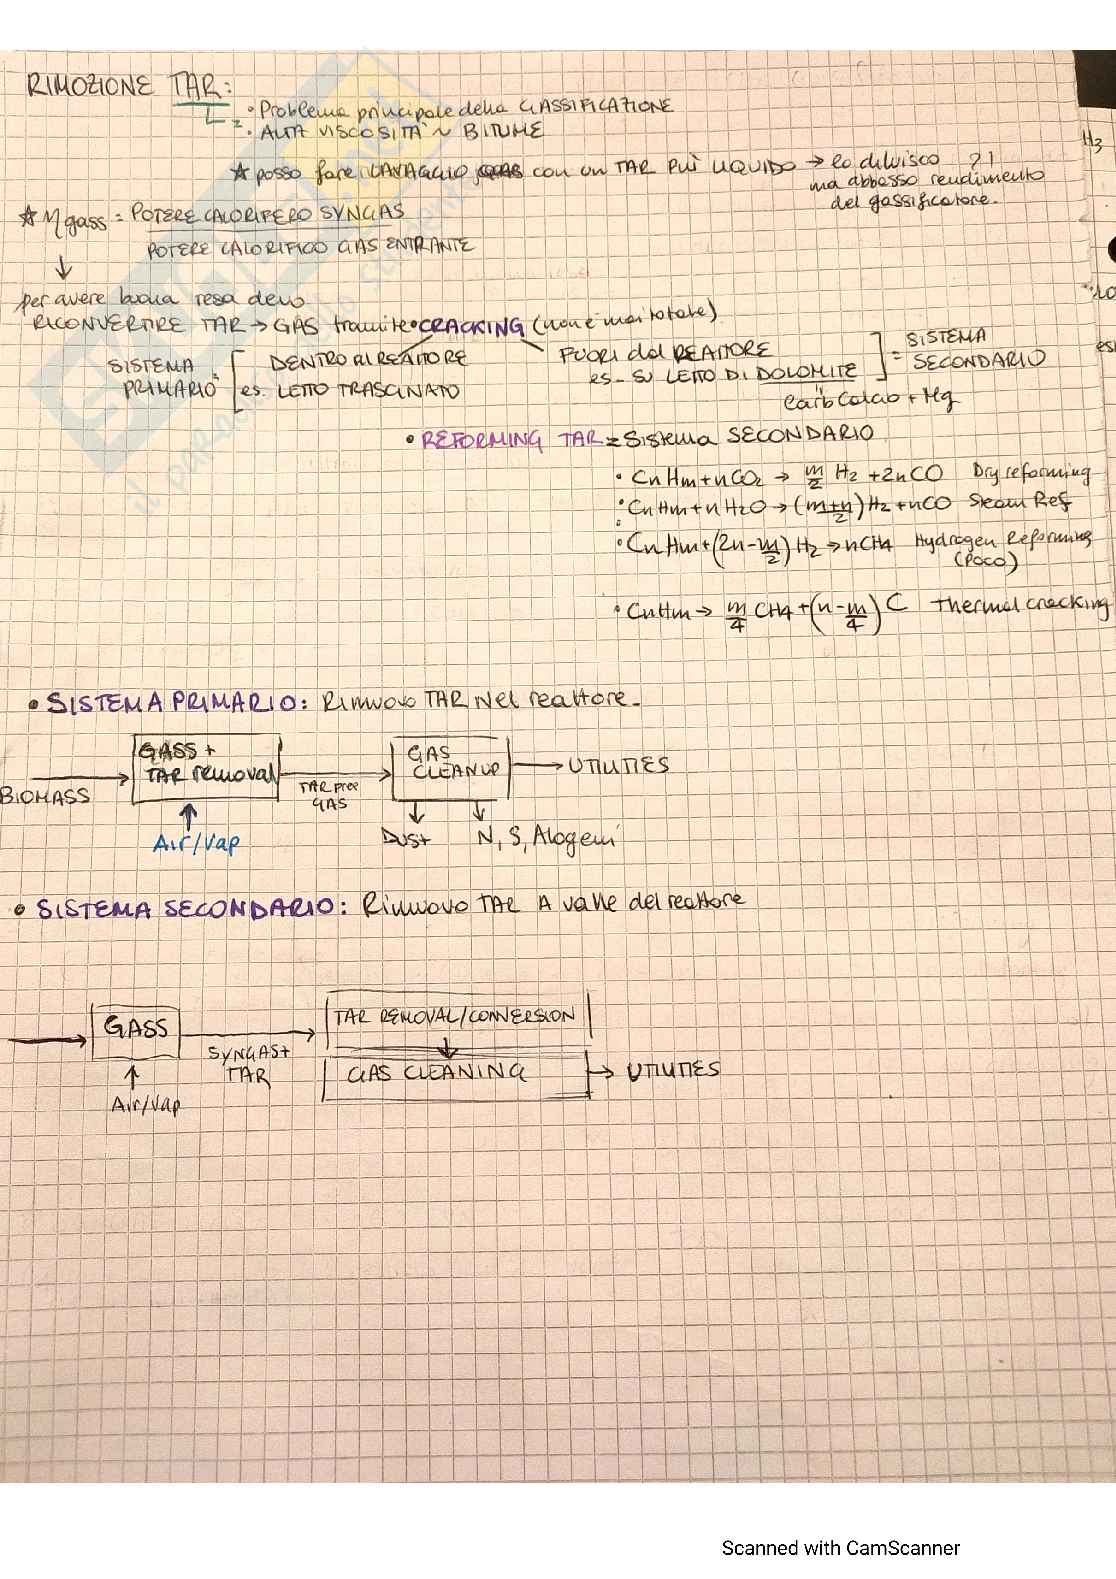 RIMOZIONE TAR:
• Problema principale della GASSIFICAZIONE
• ALTA VISCOSITÀ ~ BITUME
☆ posso fare LAVAGGIO con un TAR PIÙ LIQUIDO → lo diluisco ?!
ma abbasso rendimento
del gassificatore.
☆ η gass = POTERE CALORIFERO SYNGAS
POTERE CALORIFICO GAS ENTRANTE
↓
per avere buona resa devo
RICONVERTIRE TAR → GAS tramite • CRACKING (non è mai totale)
SISTEMA PRIMARIO: [ DENTRO DI REATTORE
es. LETTO TRASCINATO
FUORI dal REATTORE
es. SU LETTO DI DOLOMITE ] = SISTEMA SECONDARIO
Carb Calcio + Mg
• REFORMING TAR = Sistema SECONDARIO
• CnHm + nCO2 → m/2 H2 + 2nCO Dry reforming
• CnHm + nH2O → (m+n/2) H2 + nCO Steam Ref
• CnHm + (2n-m/2) H2 → nCH4 Hydrogen Reforming
(Poco)
• CnHm → m/4 CH4 + (n-m/4) C Thermal cracking
• SISTEMA PRIMARIO: Rimuovo TAR nel reattore.
BIOMASS
GASS +
TAR removal
TAR free
GAS
GAS
CLEANUP
→ UTILITIES
Air/Vap
Dust
N, S, Alogeni
• SISTEMA SECONDARIO: Rimuovo TAR A valle del reattore
GASS
SYNGAS+
TAR
Air/Vap
TAR REMOVAL/CONVERSION
GAS CLEANING
→ UTILITIES
H3
Scanned with CamScanner